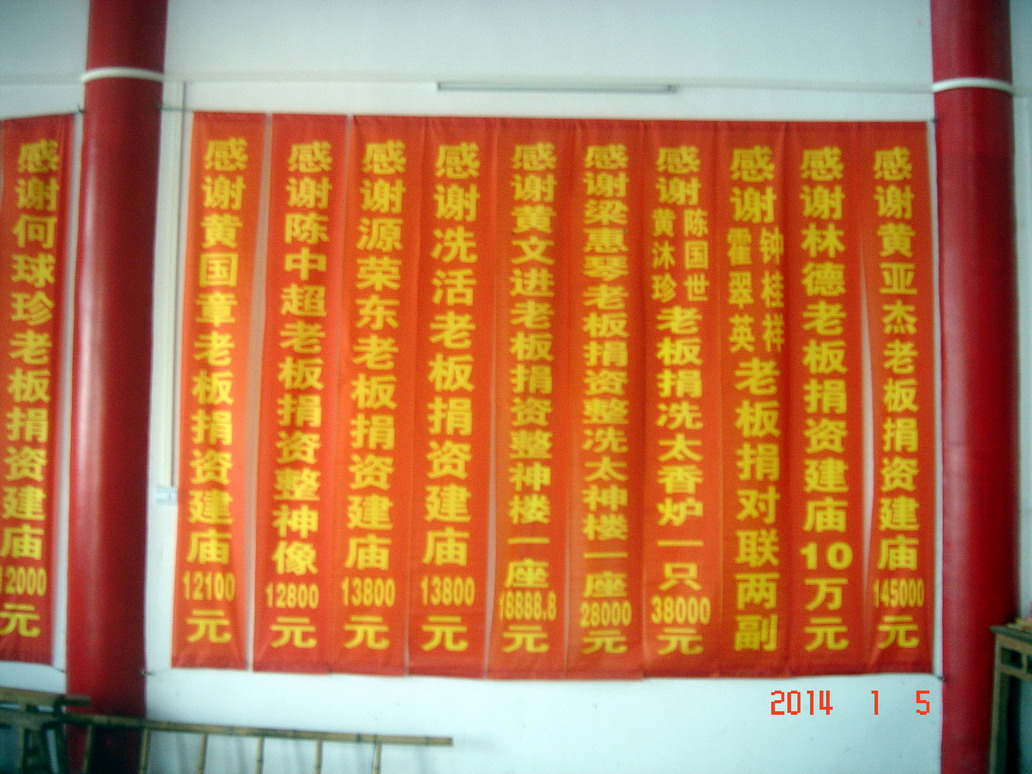 感谢何球珍老板捐资建庙12000元
感谢黄国章老板捐资建庙12100元
感谢陈中超老板捐资整神像12800元
感谢源荣东老板捐资建庙13800元
感谢冼活老板捐资建庙13800元
感谢黄文进老板捐资整神楼一座18888.8元
感谢梁惠琴老板捐资整冼太神楼一座28000元
感谢黄沐珍陈国世老板捐冼太香炉一只38000元
感谢霍翠英钟桂祥老板捐对联两副
感谢林德老板捐资建庙10万元
感谢黄亚杰老板捐资建庙145000元
2014 1 5